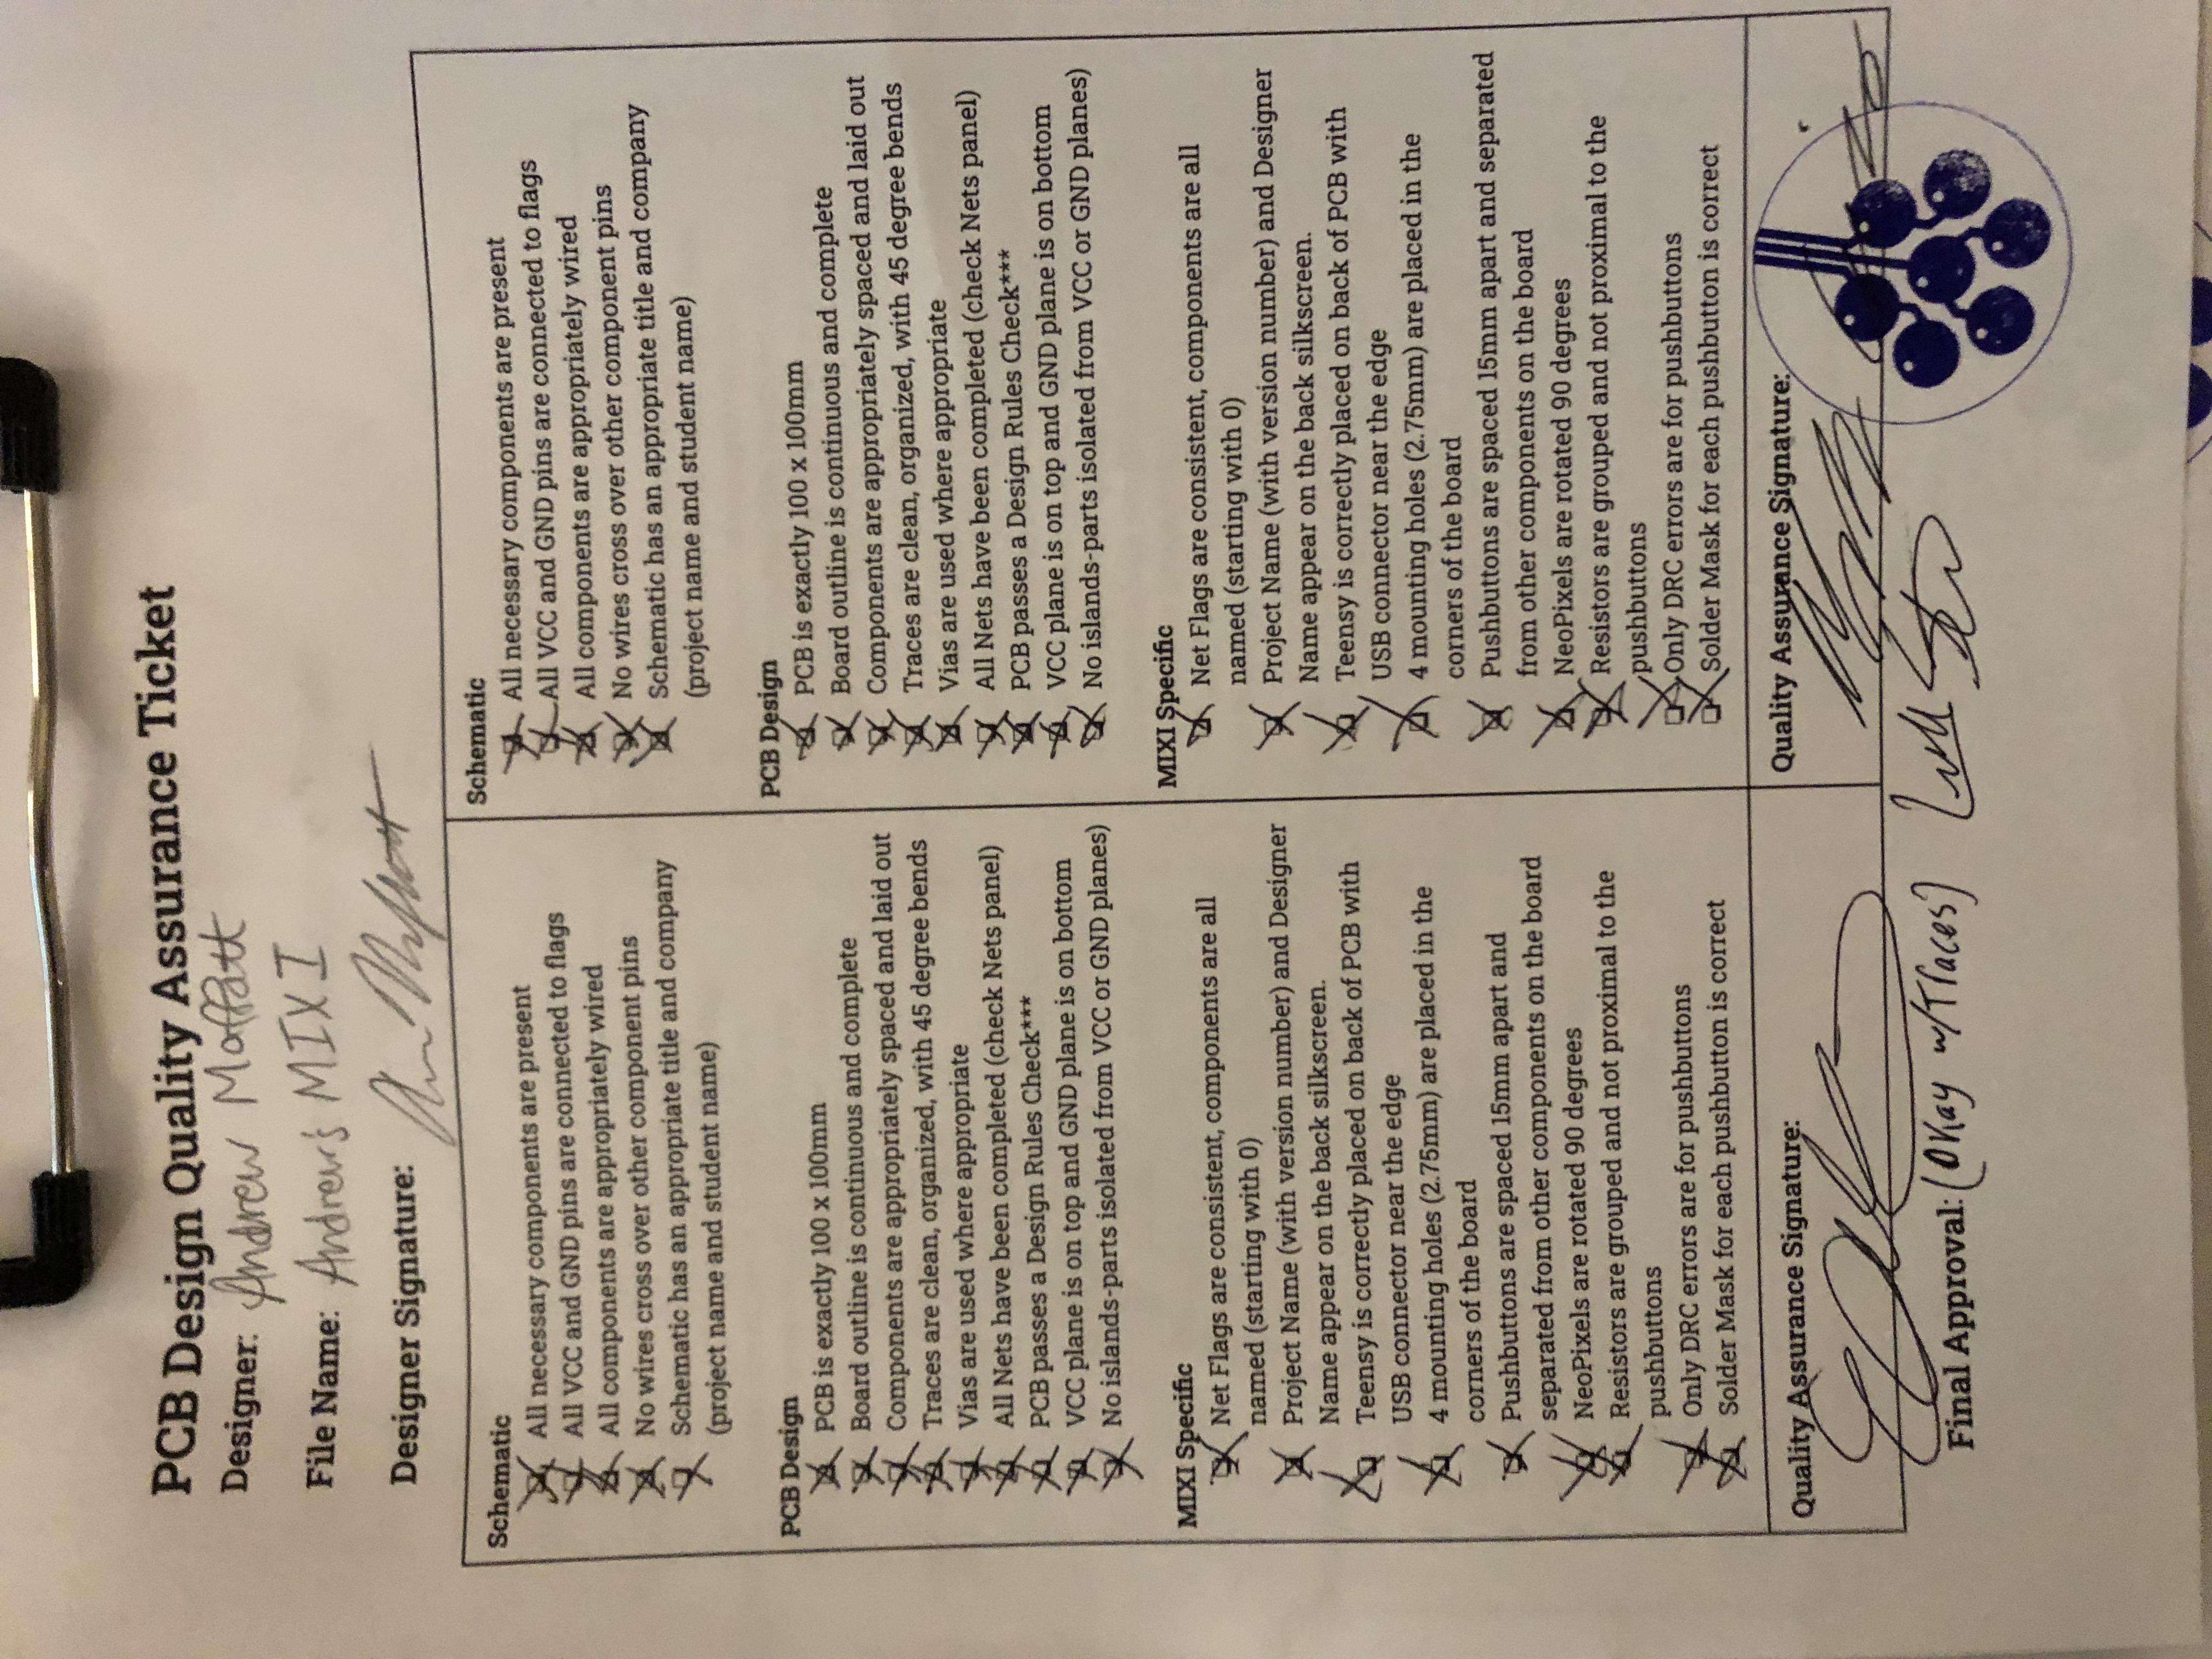 PCB Design Quality Assurance Ticket
Designer: Andrew Moffatt
File Name: Andrew's MIXI
Designer Signature:
Schematic
All necessary components are present
All VCC and GND pins are connected to flags
All components are appropriately wired
No wires cross over other component pins
Schematic has an appropriate title and company
(project name and student name)
PCB Design
PCB is exactly 100 x 100mm
Board outline is continuous and complete
Components are appropriately spaced and laid out
Traces are clean, organized, with 45 degree bends
Vias are used where appropriate
All Nets have been completed (check Nets panel)
PCB passes a Design Rules Check***
VCC plane is on top and GND plane is on bottom
No islands-parts isolated from VCC or GND planes)
MIXI Specific
Net Flags are consistent, components are all
named (starting with 0)
Project Name (with version number) and Designer
Name appear on the back silkscreen.
Teensy is correctly placed on back of PCB with
USB connector near the edge
4 mounting holes (2.75mm) are placed in the
corners of the board
Pushbuttons are spaced 15mm apart and
separated from other components on the board
NeoPixels are rotated 90 degrees
Resistors are grouped and not proximal to the
pushbuttons
Only DRC errors are for pushbuttons
Solder Mask for each pushbutton is correct
Quality Assurance Signature:
Schematic
All necessary components are present
All VCC and GND pins are connected to flags
All components are appropriately wired
No wires cross over other component pins
Schematic has an appropriate title and company
(project name and student name)
PCB Design
PCB is exactly 100 x 100mm
Board outline is continuous and complete
Components are appropriately spaced and laid out
Traces are clean, organized, with 45 degree bends
Vias are used where appropriate
All Nets have been completed (check Nets panel)
PCB passes a Design Rules Check***
VCC plane is on top and GND plane is on bottom
No islands-parts isolated from VCC or GND planes)
MIXI Specific
Net Flags are consistent, components are all
named (starting with 0)
Project Name (with version number) and Designer
Name appear on the back silkscreen.
Teensy is correctly placed on back of PCB with
USB connector near the edge
4 mounting holes (2.75mm) are placed in the
corners of the board
Pushbuttons are spaced 15mm apart and separated
from other components on the board
NeoPixels are rotated 90 degrees
Resistors are grouped and not proximal to the
pushbuttons
Only DRC errors are for pushbuttons
Solder Mask for each pushbutton is correct
Quality Assurance Signature:
Final Approval: (Okay w/Traces)